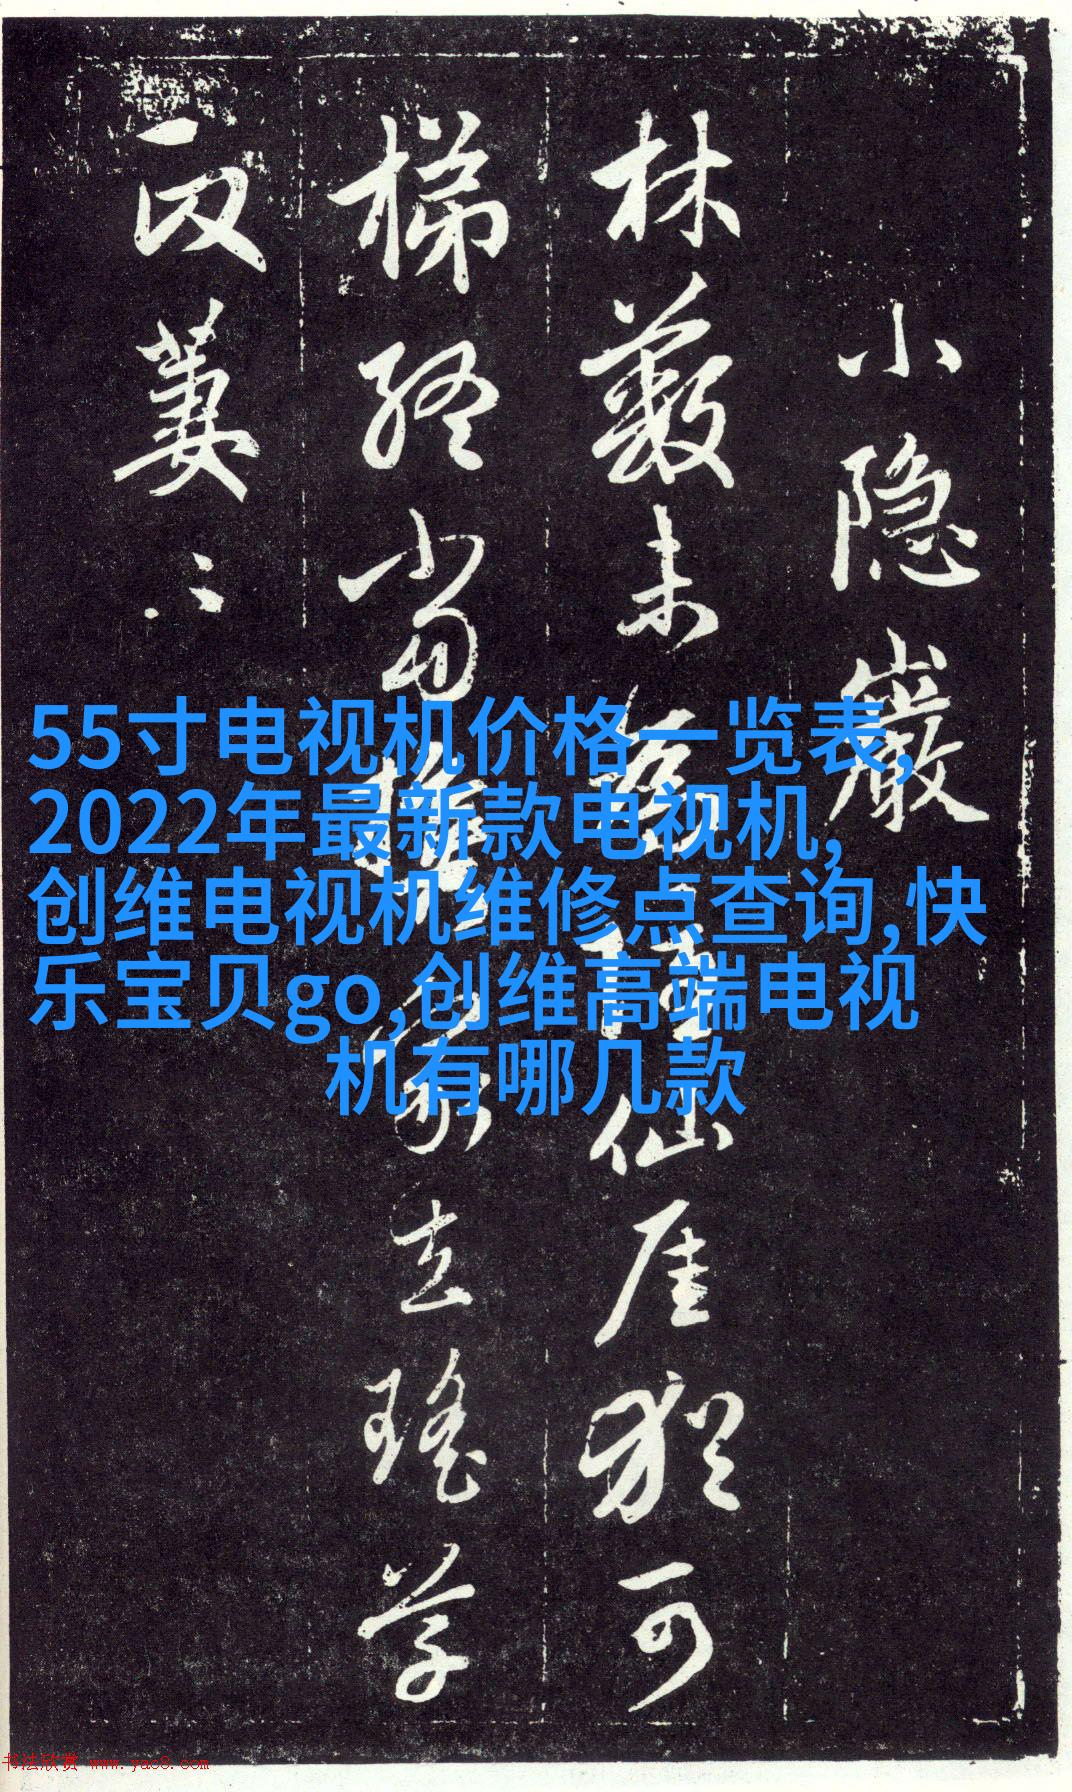 小隐巖
林薮未為仙崖猶可
梯終當攜家去瑤草
政萋〻
55寸电视机价格一览表,
2022年最新款电视机,
创维电视机维修点查询,快
乐宝贝go,创维高端电视
机有哪几款
书法欣赏 www.yac8.com